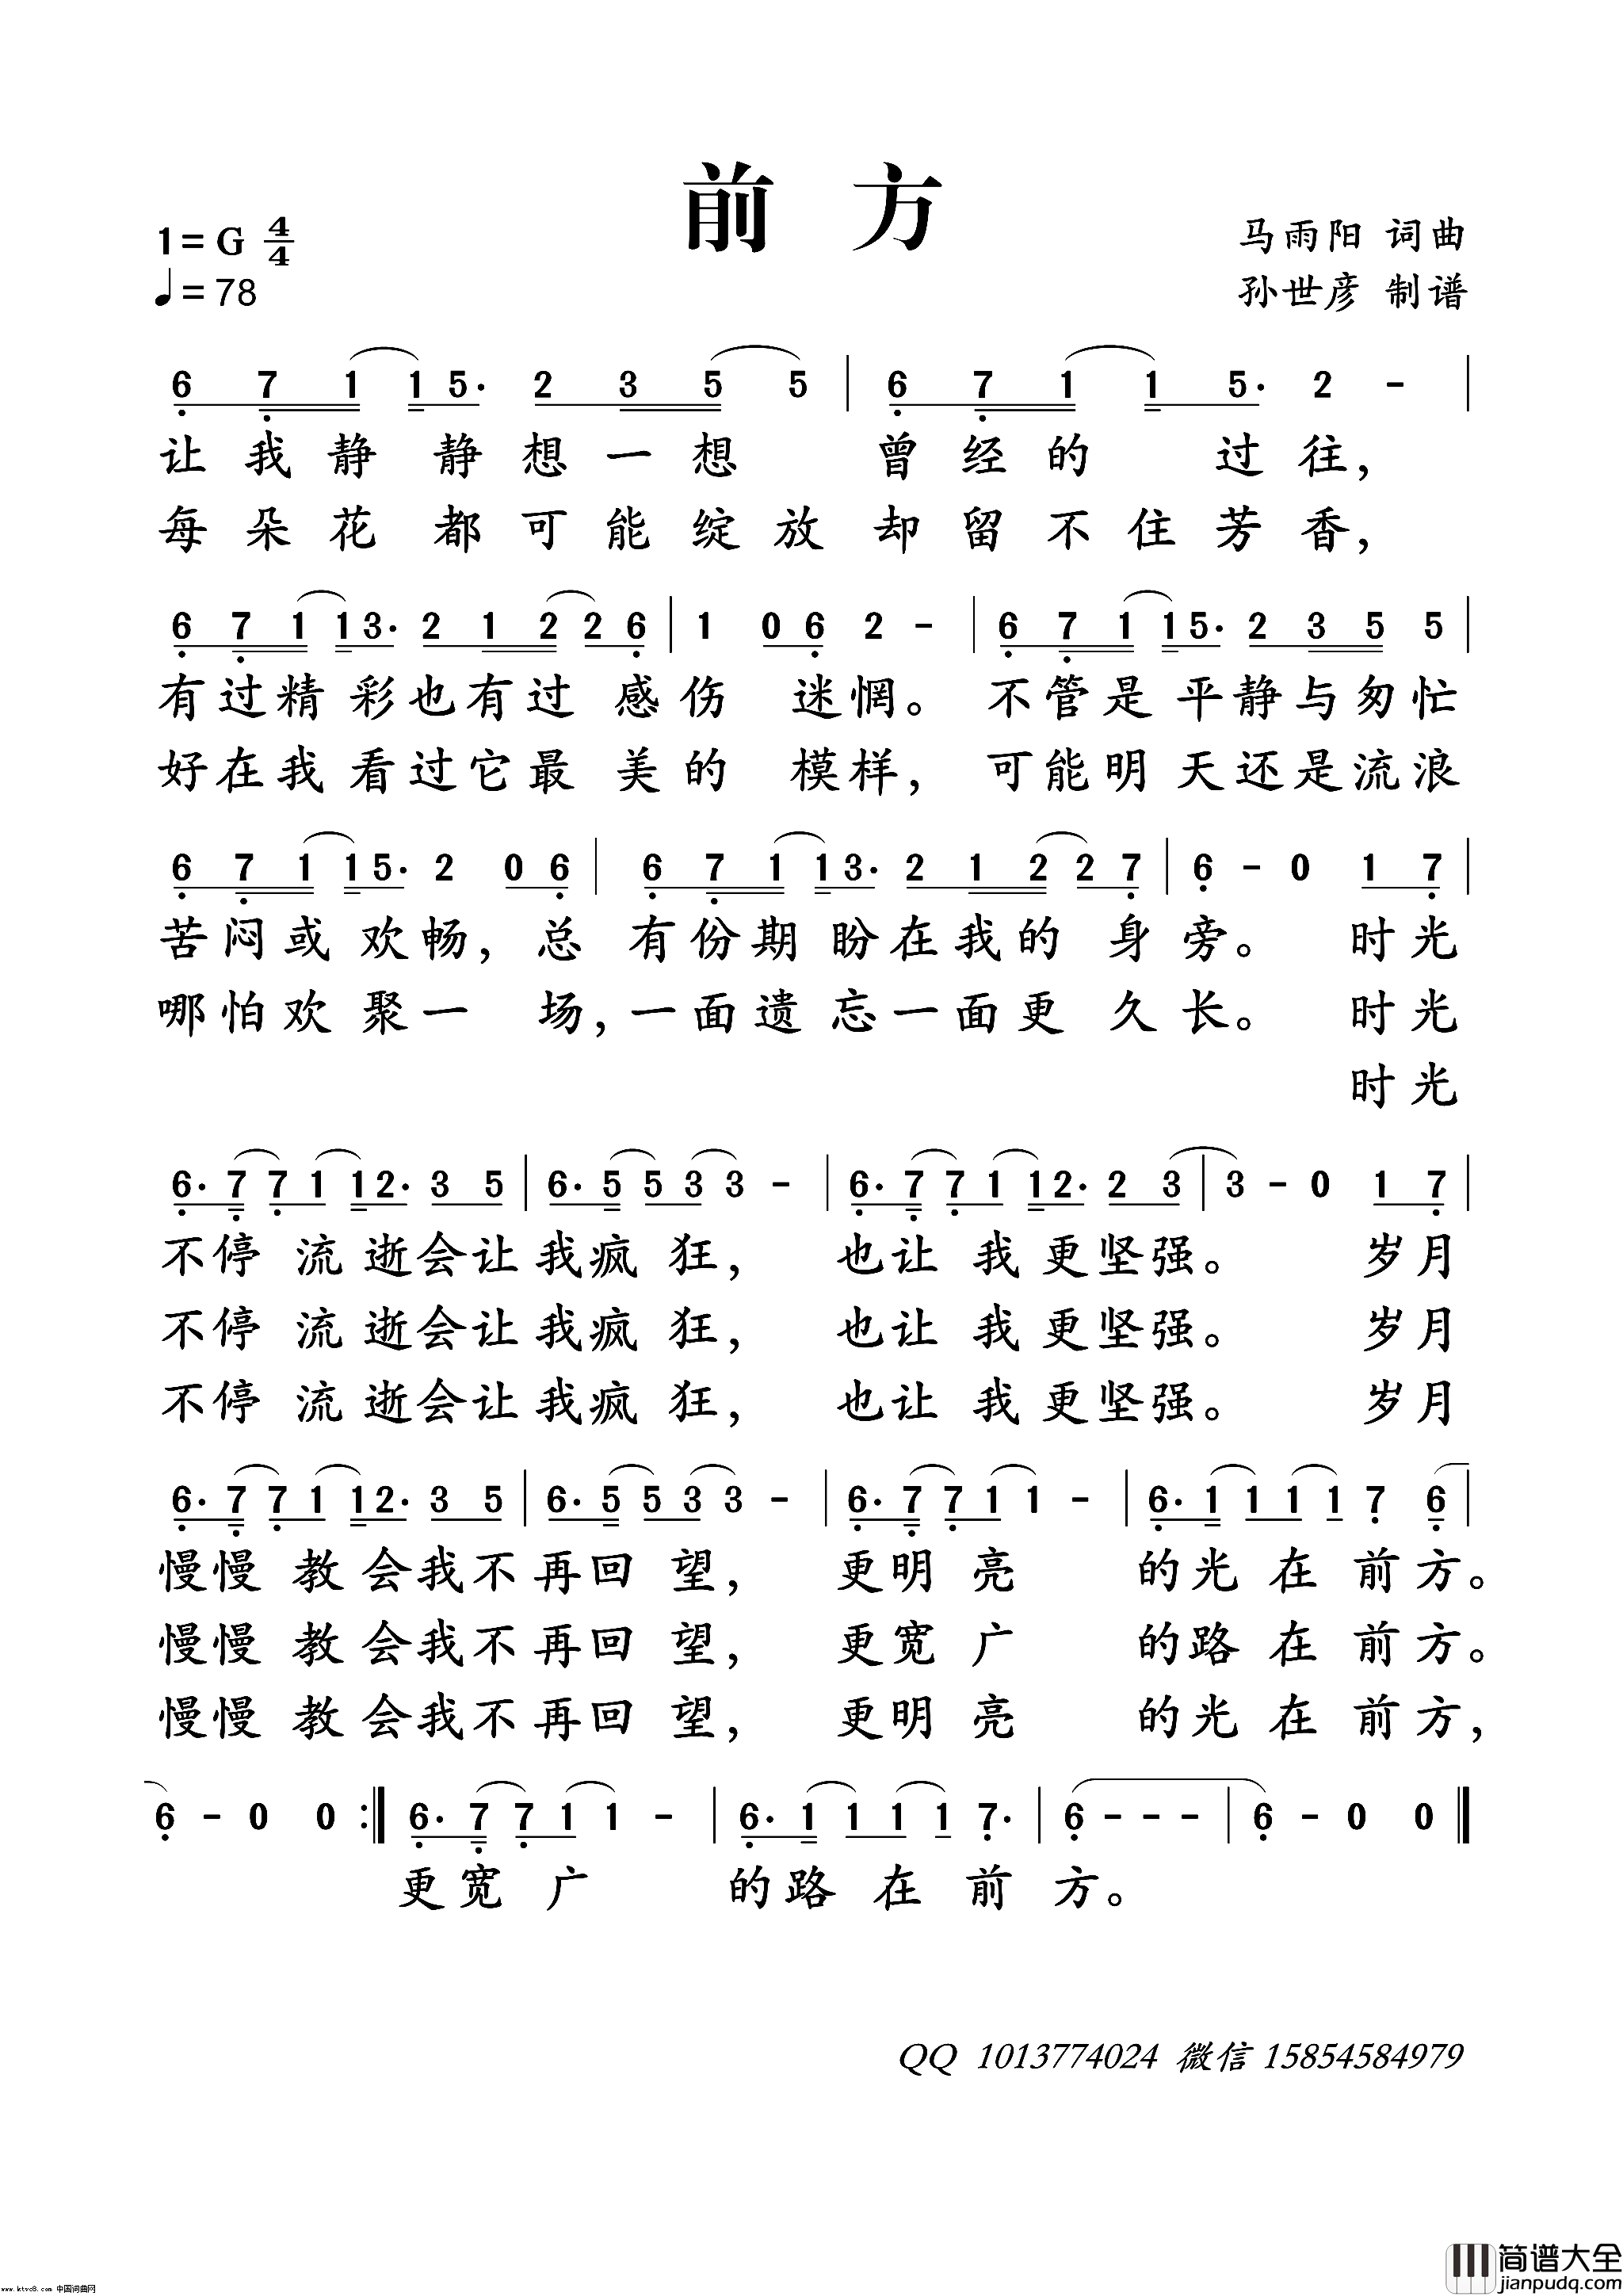 前方
1=G 4/4
♩=78
马雨阳 词曲
孙世彦 制谱
6 7 1 1 5· 2 3 5 5 | 6 7 1 1 5· 2 - |
让我静静想一想 曾经的过往，
每朵花都可能绽放却留不住芳香，
6 7 1 1 3· 2 1 2 2 6 | 1 0 6 2 - | 6 7 1 1 5· 2 3 5 5 |
有过精彩也有过感伤迷惘。不管是平静与匆忙
好在我看过它最美的模样，可能明天还是流浪
6 7 1 1 5· 2 0 6 | 6 7 1 1 3· 2 1 2 2 7 | 6 - 0 1 7 |
苦闷或欢畅，总有份期盼在我的身旁。时光
哪怕欢聚一场，一面遗忘一面更久长。时光
时光
6· 7 7 1 1 2· 3 5 | 6· 5 5 3 3 - | 6· 7 7 1 1 2· 2 3 | 3 - 0 1 7 |
不停流逝会让我疯狂，也让我更坚强。岁月
不停流逝会让我疯狂，也让我更坚强。岁月
不停流逝会让我疯狂，也让我更坚强。岁月
6· 7 7 1 1 2· 3 5 | 6· 5 5 3 3 - | 6· 7 7 1 1 - | 6· 1 1 1 1 7 6 |
慢慢教会我不再回望，更明亮的光在前方。
慢慢教会我不再回望，更宽广的路在前方。
慢慢教会我不再回望，更明亮的光在前方，
6 - 0 0 :| 6· 7 7 1 1 - | 6· 1 1 1 1 7· | 6 - - - | 6 - 0 0 ||
更宽广的路在前方。
QQ 1013774024 微信 15854584979
www.ktvc8.com 中国词曲网
简谱大全
jianpudq.com